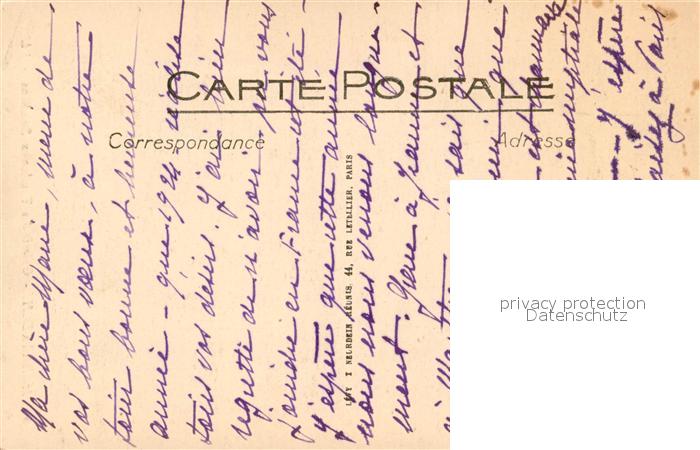 CARTE POSTALE
Correspondance
Adresse
LÉVY & NEURDEIN RÉUNIS, 44, RUE LETELLIER, PARIS
Ma chère Marie, merci de
vos bons vœux, à notre
tour bonne et heureuse
année - que 1924 réalise
tous vos désirs. J'ai bien
regretté de n'avoir pu vous
joindre en France cet été -
J'espère que cette année
nous nous verrons longue-
ment. Grâce à Jeanne et
sais que
qui que
est
J'espère
à Paris
privacy protection
Datenschutz